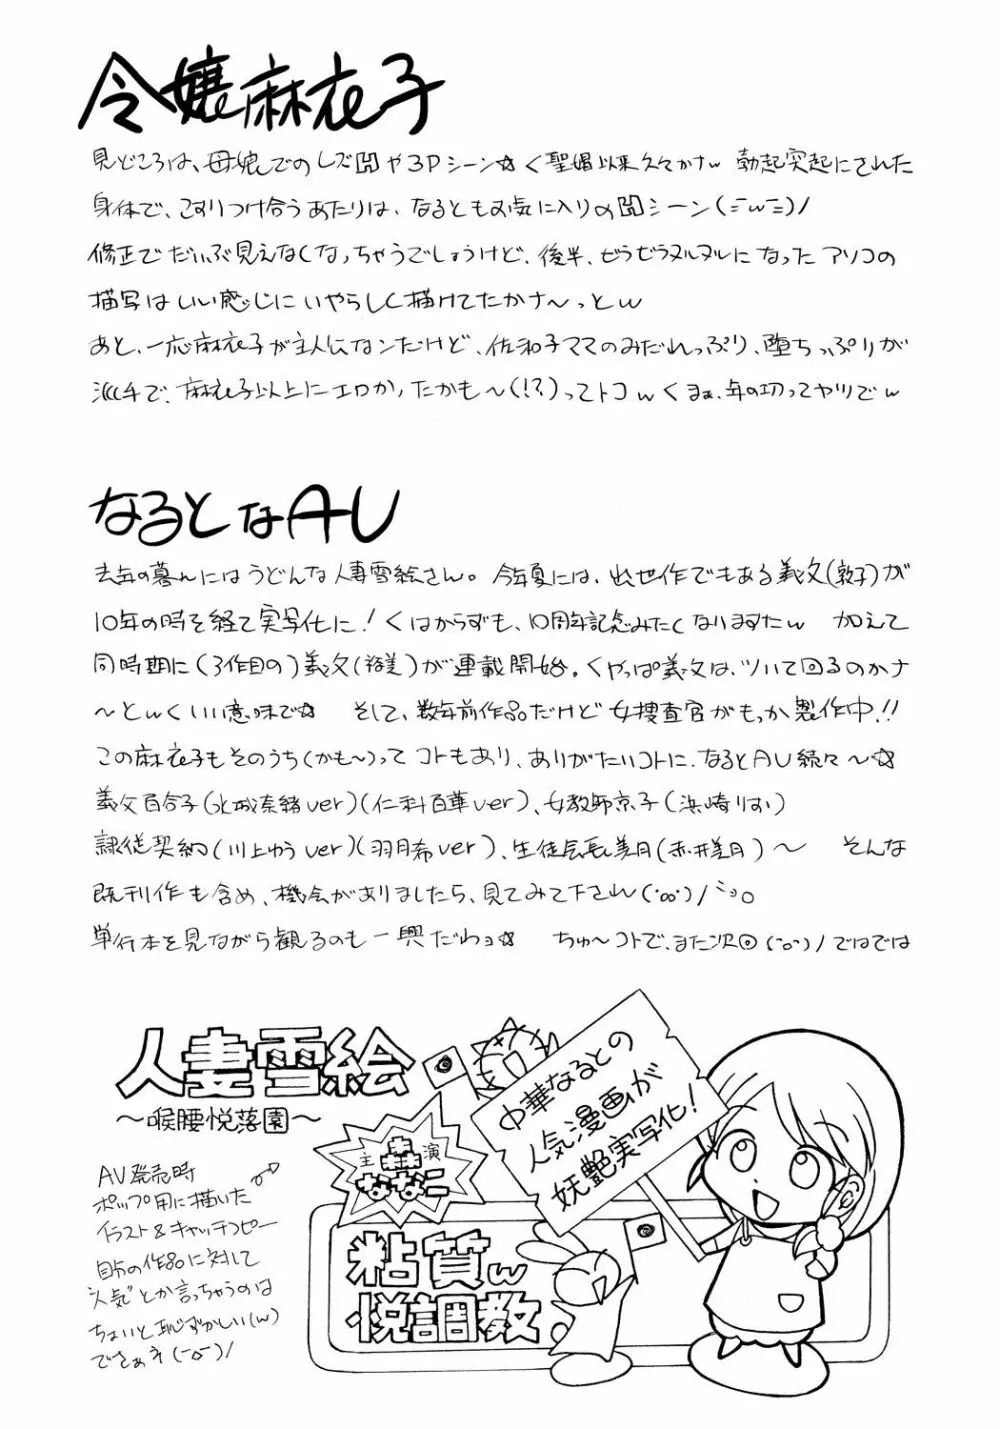 令嬢麻衣子
見どころは、母娘でのレズHや3Pシーン☆く聖娼以来久々かナw 勃起突起にされた
身体で、こすりつけ合うあたりは、なるともお気に入りのHシーン(ニwニ)ノ
修正でだいぶ見えなくなっちゃうでしょうけど、後半、ビラビラヌルヌルになったアソコの
描写はいい感じにいやらしく描けてたかナ～っとw
あと、一応麻衣子が主人公なンだけど、佐和子ママのみだれっぷり、堕ちっぷりが
派手で、麻衣子以上にエロかったかも～(!?)ってトコw くまぁ、年の功ってヤツでw
なるとなAV
去年の暮れにはうどんな人妻雪絵さん。今年夏には、出世作でもある義父(敦子)が
10年の時を経て実写化に!くはからずも、10周年記念みたくなりますたw 加えて
同時期に(3作目の)義父(裕美)が連載開始。くやっぱ義父は、ツいて回るのかナ
～とwくいい意味で☆ そして、数年前作品だけど女捜査官がもっか製作中!!
この麻衣子もそのうち(かも～)ってコトもあり、ありがたいコトに、なるとAV続々～☆
義父百合子(水城奈緒ver)(仁科百華ver)、女教師京子(浜崎りお)
隷従契約(川上ゆうver)(羽月希ver)、生徒会長美月(赤井美月)～ そんな
既刊作も含め、機会がありましたら、見てみて下さいw
単行本を見ながら観るのも一興だわョ☆ ちゅ～コトで、また次回(･o･)ノではでは
人妻雪絵
～喉腰悦落園～
主演
森ななこ
中華なるとの
人気漫画が
妖艶実写化!
粘質w
悦調教
AV発売時
ポップ用に描いた
イラスト&キャッチコピー
自分の作品に対して
"人気"とか言っちゃうのは
ちょいと恥ずかしい(w)
でさぁネ(-o-)ノ